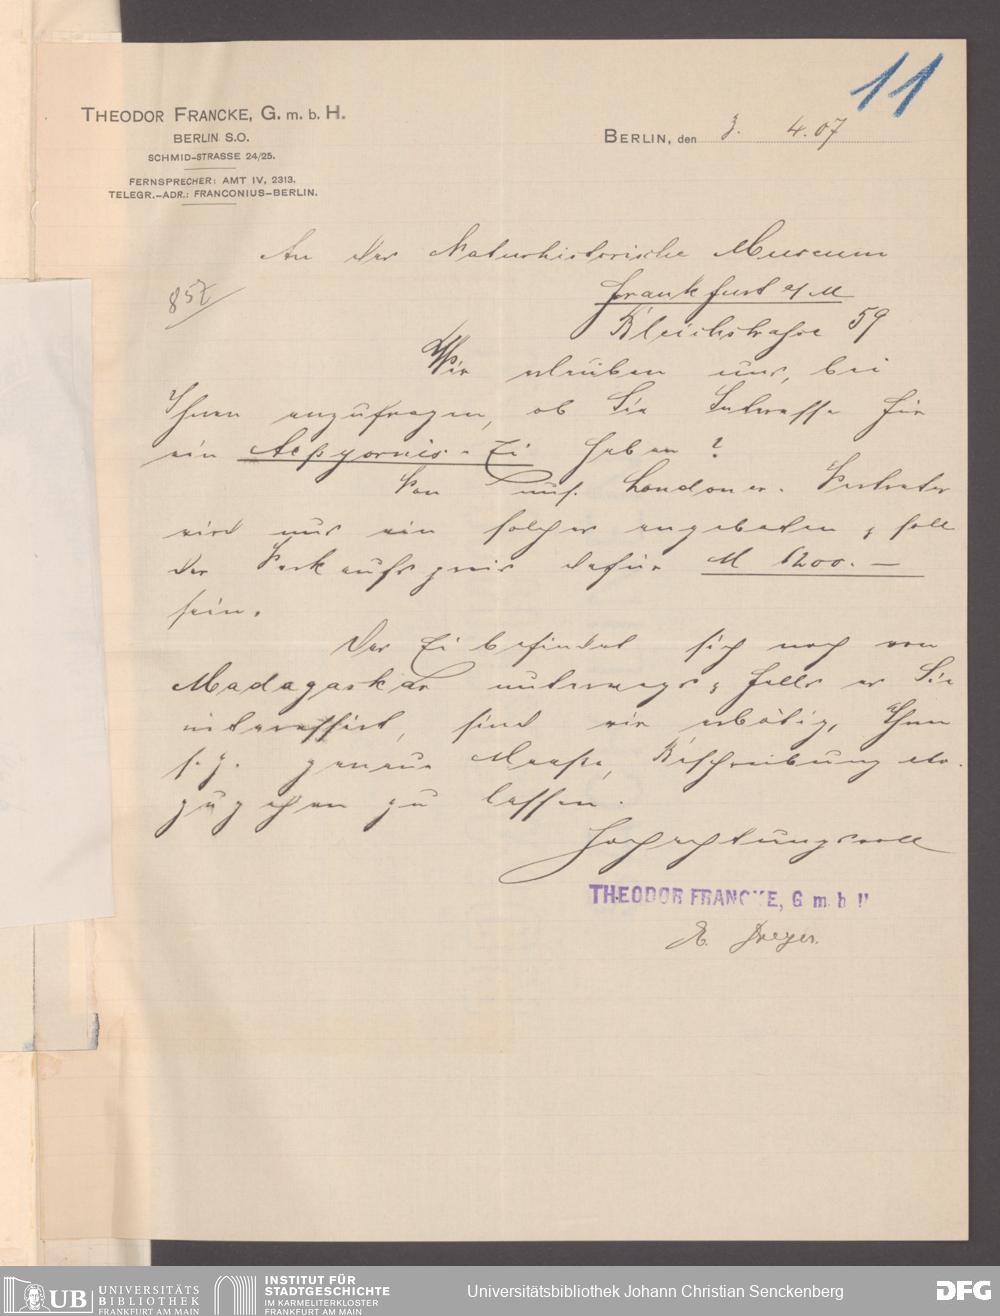 11
THEODOR FRANCKE, G. m. b. H.
BERLIN S.O.
SCHMID-STRASSE 24/25.
FERNSPRECHER: AMT IV, 2313.
TELEGR.-ADR.: FRANCONIUS-BERLIN.
BERLIN, den 3. 4. 07
An das Naturhistorische Museum
857
Frankfurt a/M
Bleichstrasse 59
Wir erlauben uns, bei
Ihnen anzufragen, ob Sie Interesse für
ein Aepyornis-Ei haben?
Von uns. Londoner Vertreter
wird uns ein solches angeboten & soll
der Verkaufspreis dafür M 1200.—
sein.
Das Ei befindet sich noch von
Madagaskar unterwegs & falls es Sie
interessirt, sind wir erbötig, Ihnen
s. Z. genaue Maasse, Beschreibung etc.
zugehen zu lassen.
Hochachtungsvoll
THEODOR FRANCKE, G. m. b. H.
Dreyer.
UB UNIVERSITÄTS
BIBLIOTHEK
FRANKFURT AM MAIN
INSTITUT FÜR
STADTGESCHICHTE
IM KARMELITERKLOSTER
FRANKFURT AM MAIN
Universitätsbibliothek Johann Christian Senckenberg
DFG